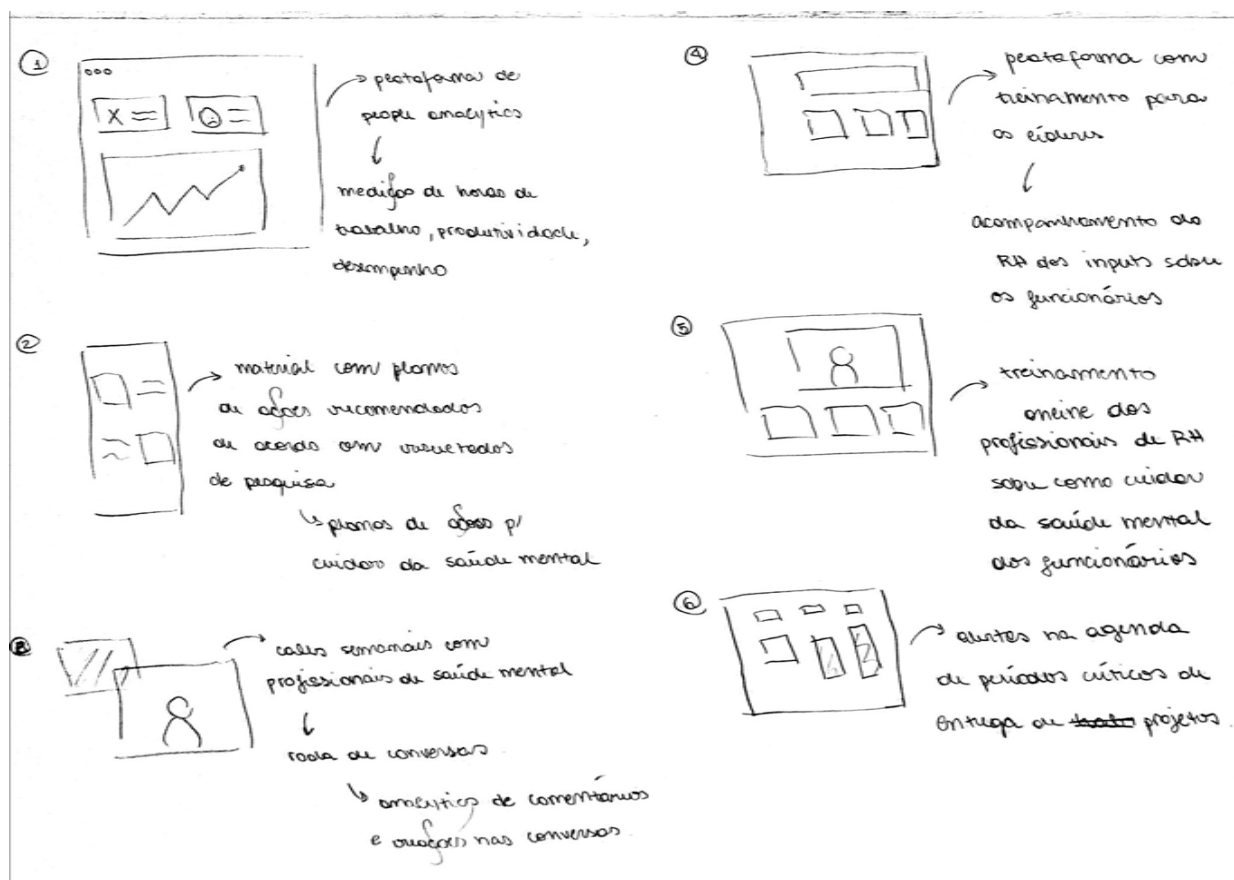 1
plataforma de
people analytics
medição de horas de
trabalho, produtividade,
desempenho
2
material com planos
de ações recomendados
de acordo com resultados
de pesquisa
planos de ações p/
cuidar da saúde mental
3
calls semanais com
profissionais de saúde mental
roda de conversas
analytics de comentários
e reações nas conversas.
4
plataforma com
treinamento para
os líderes
acompanhamento do
RH dos inputs sobre
os funcionários
5
treinamento
online dos
profissionais de RH
sobre como cuidar
da saúde mental
dos funcionários
6
alertas na agenda
de períodos críticos de
entrega de projetos.